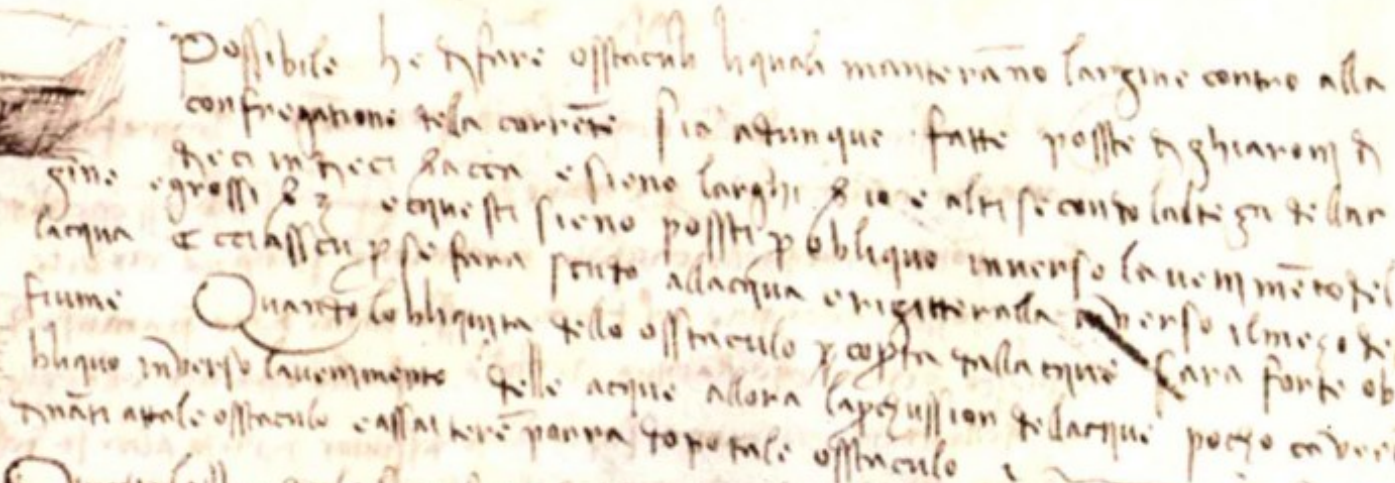 Possibile he di fare osstaculi liquali manterāno largine contro alla
confregatione dela corrētē sia adunque fatte posste di ghiaronj di
dieci in dieci bracca e sieno larghi br 10 e alti secondo lalteza dellar
gine e grossi br 3 ecquesti sieno possti p obliquo inverso lavenimēto del
lacqua Ecciasscū p se fara scudo allacqua e rigitteralla inverso il mezo del
fiume Quando lobbliquita dello osstaculo coperta dallacque sara forte ob
bliquo inverso lavenimento delle acque allora la percussion dellacque pocho caver
dinātj attale osstaculo e assai terē porra dopo tale osstaculo